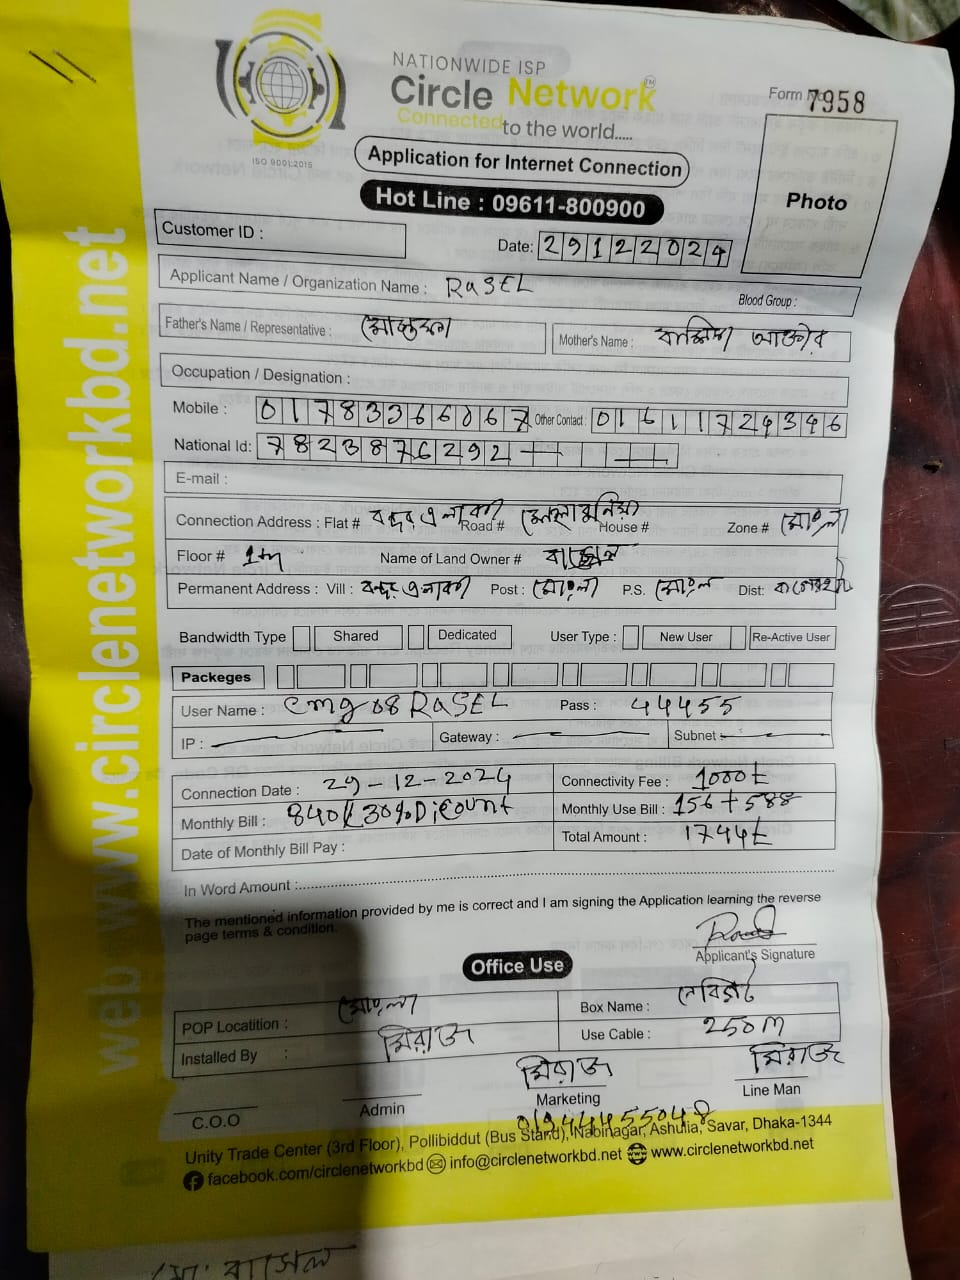 NATIONWIDE ISP
Circle Network™
Connected to the world.....
ISO 9001:2015
Form No 7958
Application for Internet Connection
Photo
Hot Line : 09611-800900
Customer ID :
Date: 29122024
Applicant Name / Organization Name : RaSEL
Blood Group :
Father's Name / Representative :
Mother's Name : আক্তার
Occupation / Designation :
Mobile : 01783366067 Other Contact : 01611724346
National Id: 7823876292
E-mail :
Connection Address : Flat # বন্দর এলাকা Road # House # Zone # মোংলা
Floor # 1th Name of Land Owner #
Permanent Address : Vill : বন্দর এলাকা Post : মোংলা P.S. মোংলা Dist: বাগেরহাট
Bandwidth Type Shared Dedicated User Type : New User Re-Active User
Packeges
User Name : cmg08RaSEL Pass : 44455
IP : Gateway : Subnet
Connection Date : 29-12-2024 Connectivity Fee : 1000t
Monthly Bill : 840/ 30% Dicount Monthly Use Bill : 156 + 588
Date of Monthly Bill Pay : Total Amount : 1744t
In Word Amount :
The mentioned information provided by me is correct and I am signing the Application learning the reverse
page terms & condition.
Applicant's Signature
Office Use
POP Locatition : মোংলা Box Name :
Installed By : মিরাজ Use Cable : 250m
মিরাজ মিরাজ
C.O.O Admin Marketing Line Man
01944455048
Unity Trade Center (3rd Floor), Pollibiddut (Bus Stand), Nabinagar, Ashulia, Savar, Dhaka-1344
facebook.com/circlenetworkbd info@circlenetworkbd.net www.circlenetworkbd.net
www.circlenetworkbd.net
মো: রাসেল